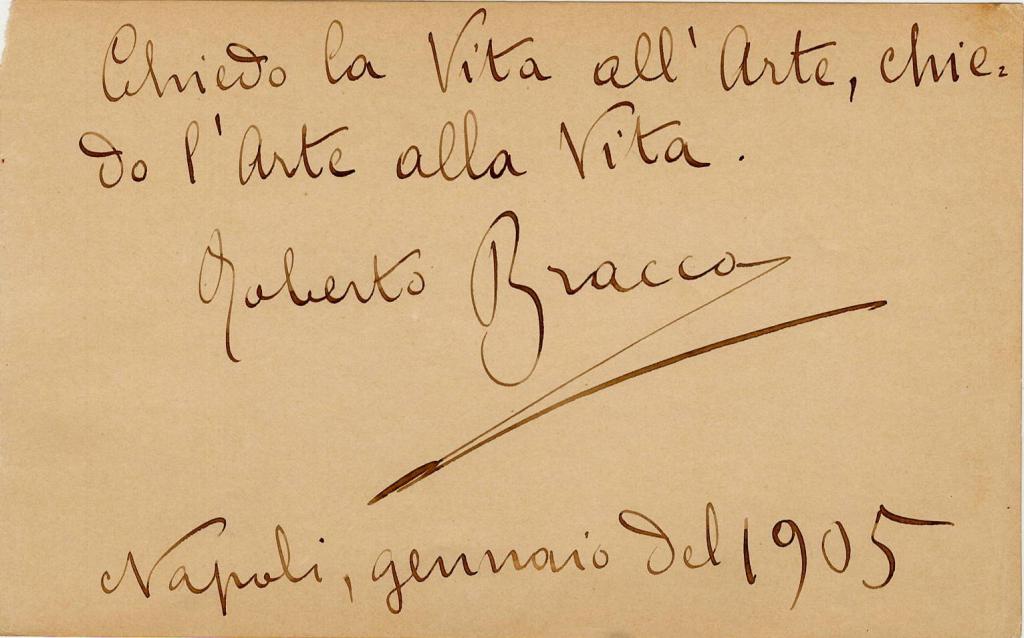 Chiedo la Vita all'Arte, chie=
do l'Arte alla Vita.
Roberto Bracco
Napoli, gennaio del 1905